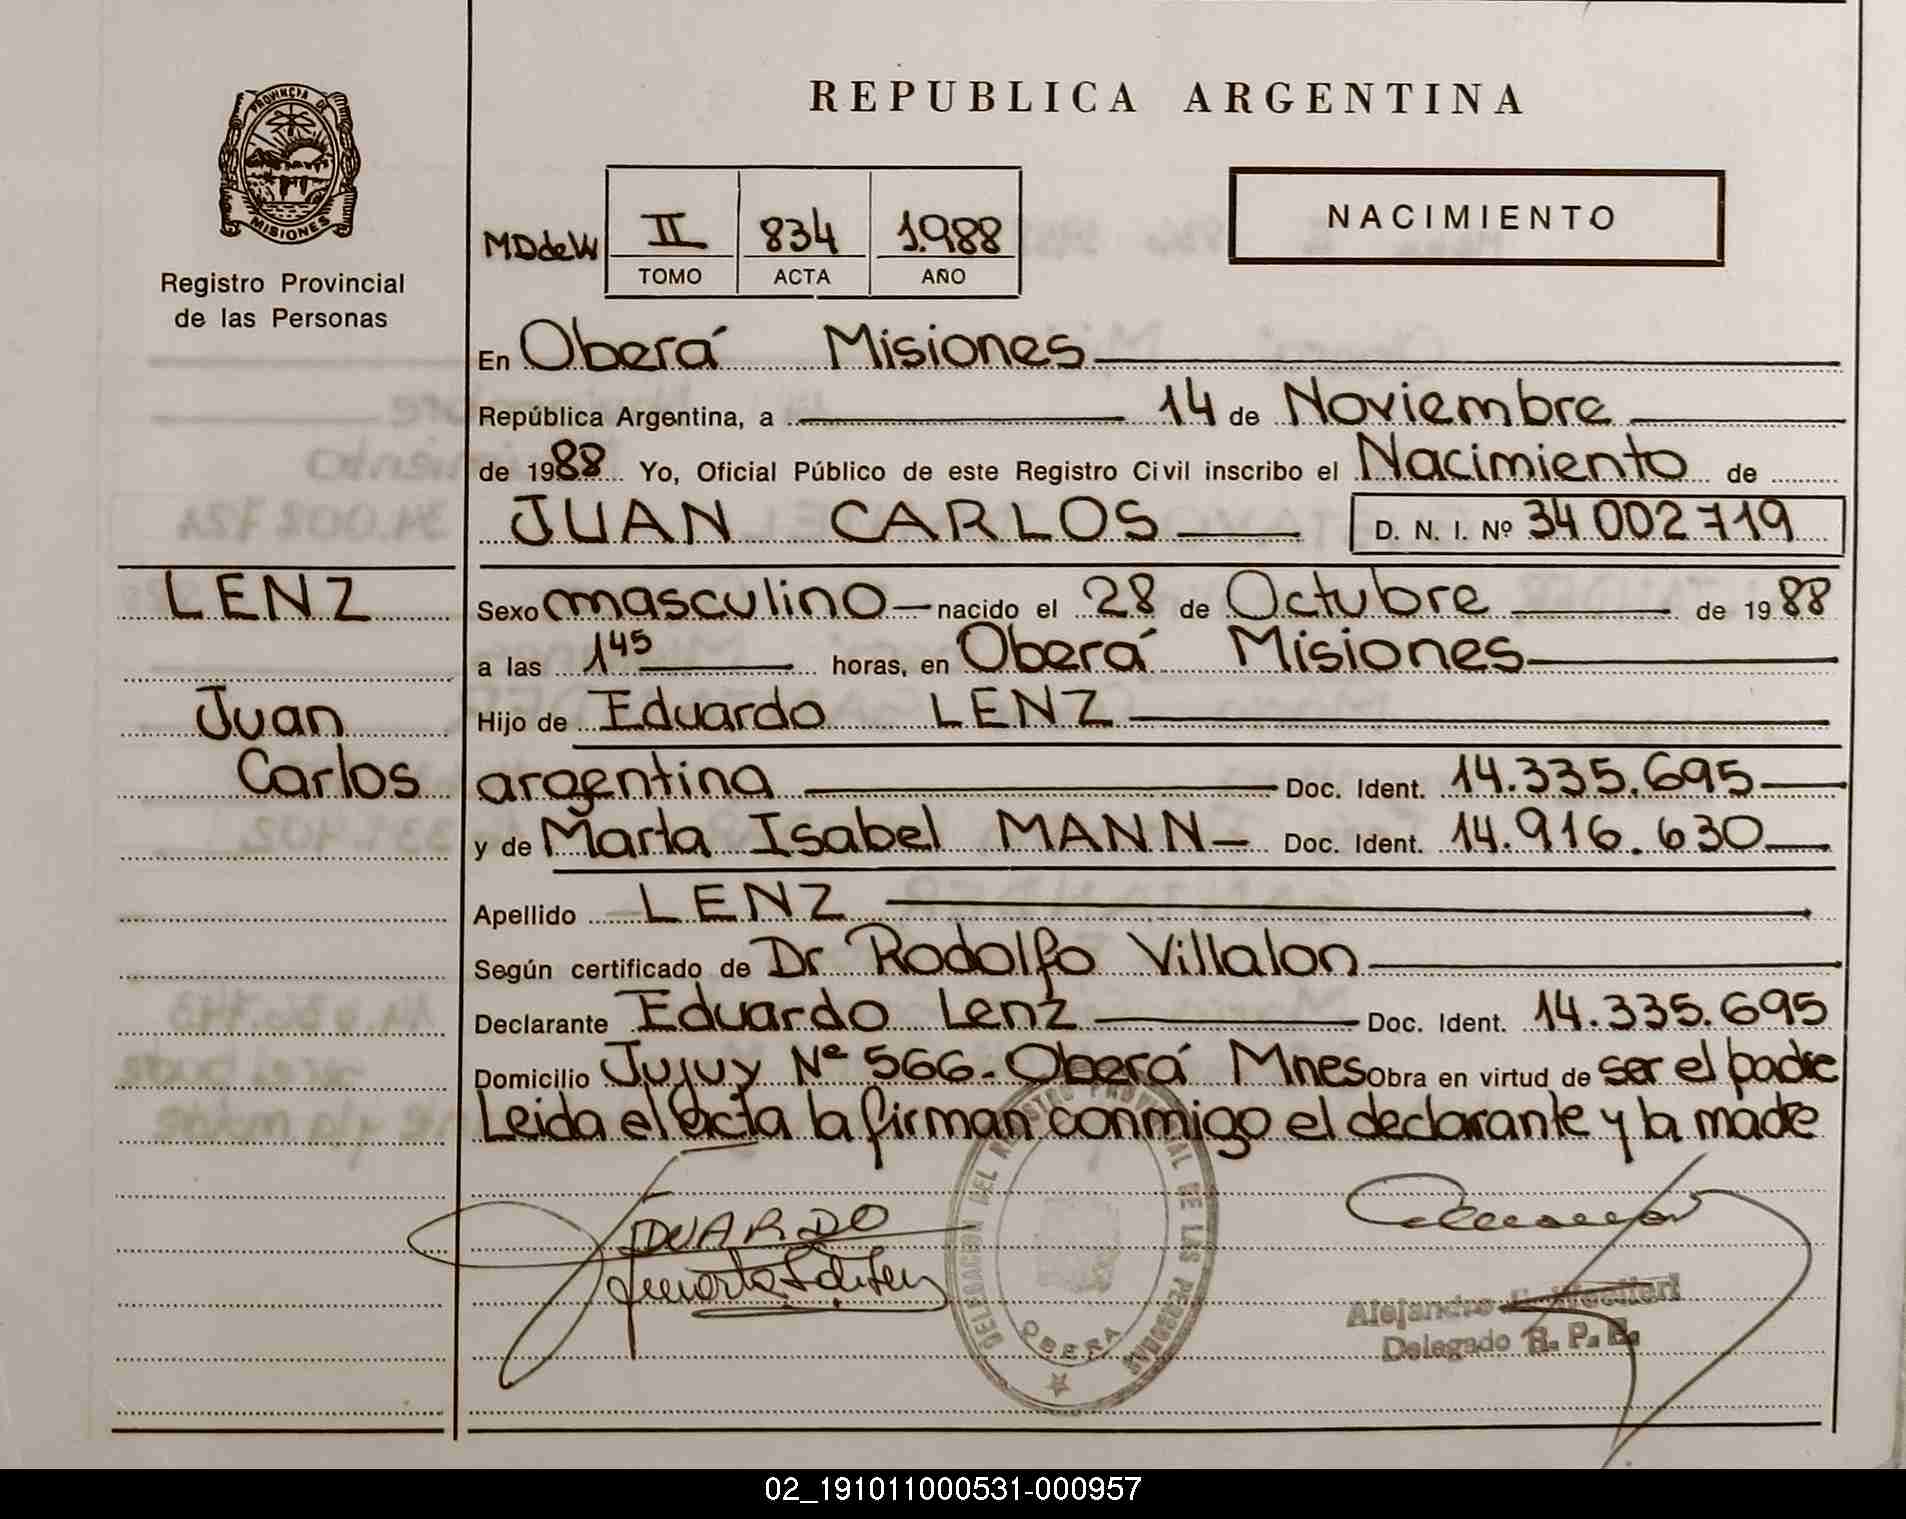 PROVINCIA DE
MISIONES
Registro Provincial
de las Personas
LENZ
Juan
Carlos
REPUBLICA ARGENTINA
MDdeW
II 834 1.988
TOMO ACTA AÑO
NACIMIENTO
En Oberá Misiones
República Argentina, a 14 de Noviembre
de 1988 Yo, Oficial Público de este Registro Civil inscribo el Nacimiento de
JUAN CARLOS D. N. I. Nº 34 002 719
Sexo masculino nacido el 28 de Octubre de 1988
a las 1 45 horas, en Oberá Misiones
Hijo de Eduardo LENZ
argentina Doc. Ident. 14.335.695
y de Marta Isabel MANN Doc. Ident. 14.916.630
Apellido LENZ
Según certificado de Dr Rodolfo Villalon
Declarante Eduardo Lenz Doc. Ident. 14.335.695
Domicilio Jujuy Nº 566. Oberá Mnes Obra en virtud de ser el padre
Leida el acta la firman conmigo el declarante y la madre
EDUARDO
DELEGACION DEL REGISTRO PROVINCIAL DE LAS PERSONAS
OBERA
Alejandro
Delegado R. P. P.
02_191011000531-000957